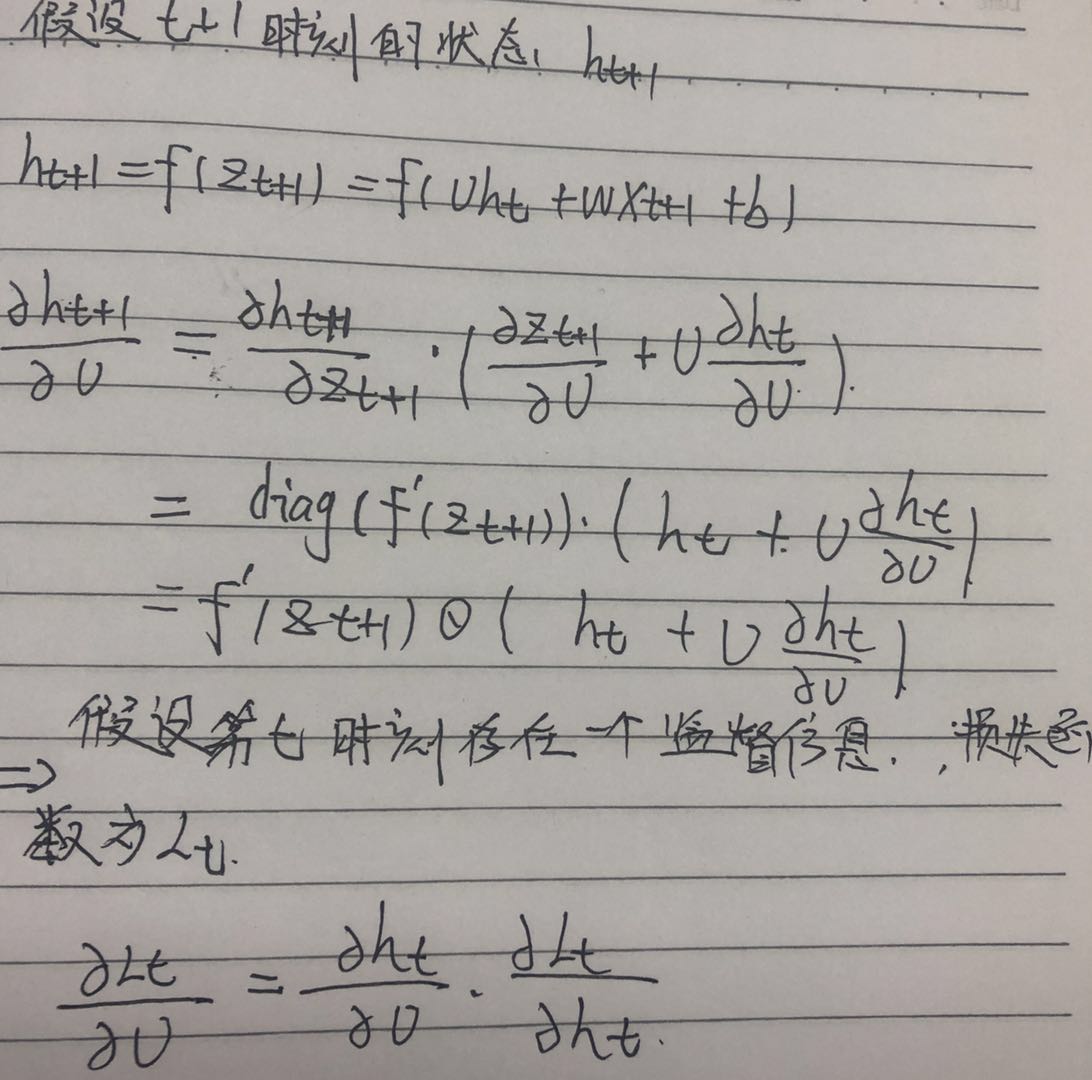 假设 t+1 时刻的状态 h_{t+1}
h_{t+1} = f(z_{t+1}) = f(Uh_t + WX_{t+1} + b)
∂h_{t+1}/∂U = ∂h_{t+1}/∂z_{t+1} · (∂z_{t+1}/∂U + U ∂h_t/∂U).
= diag(f'(z_{t+1})) · (h_t + U ∂h_t/∂U)
= f'(z_{t+1}) ⊙ (h_t + U ∂h_t/∂U)
⇒ 假设第 t 时刻存在一个监督信息.,损失函
数为 L_t.
∂L_t/∂U = ∂h_t/∂U · ∂L_t/∂h_t.